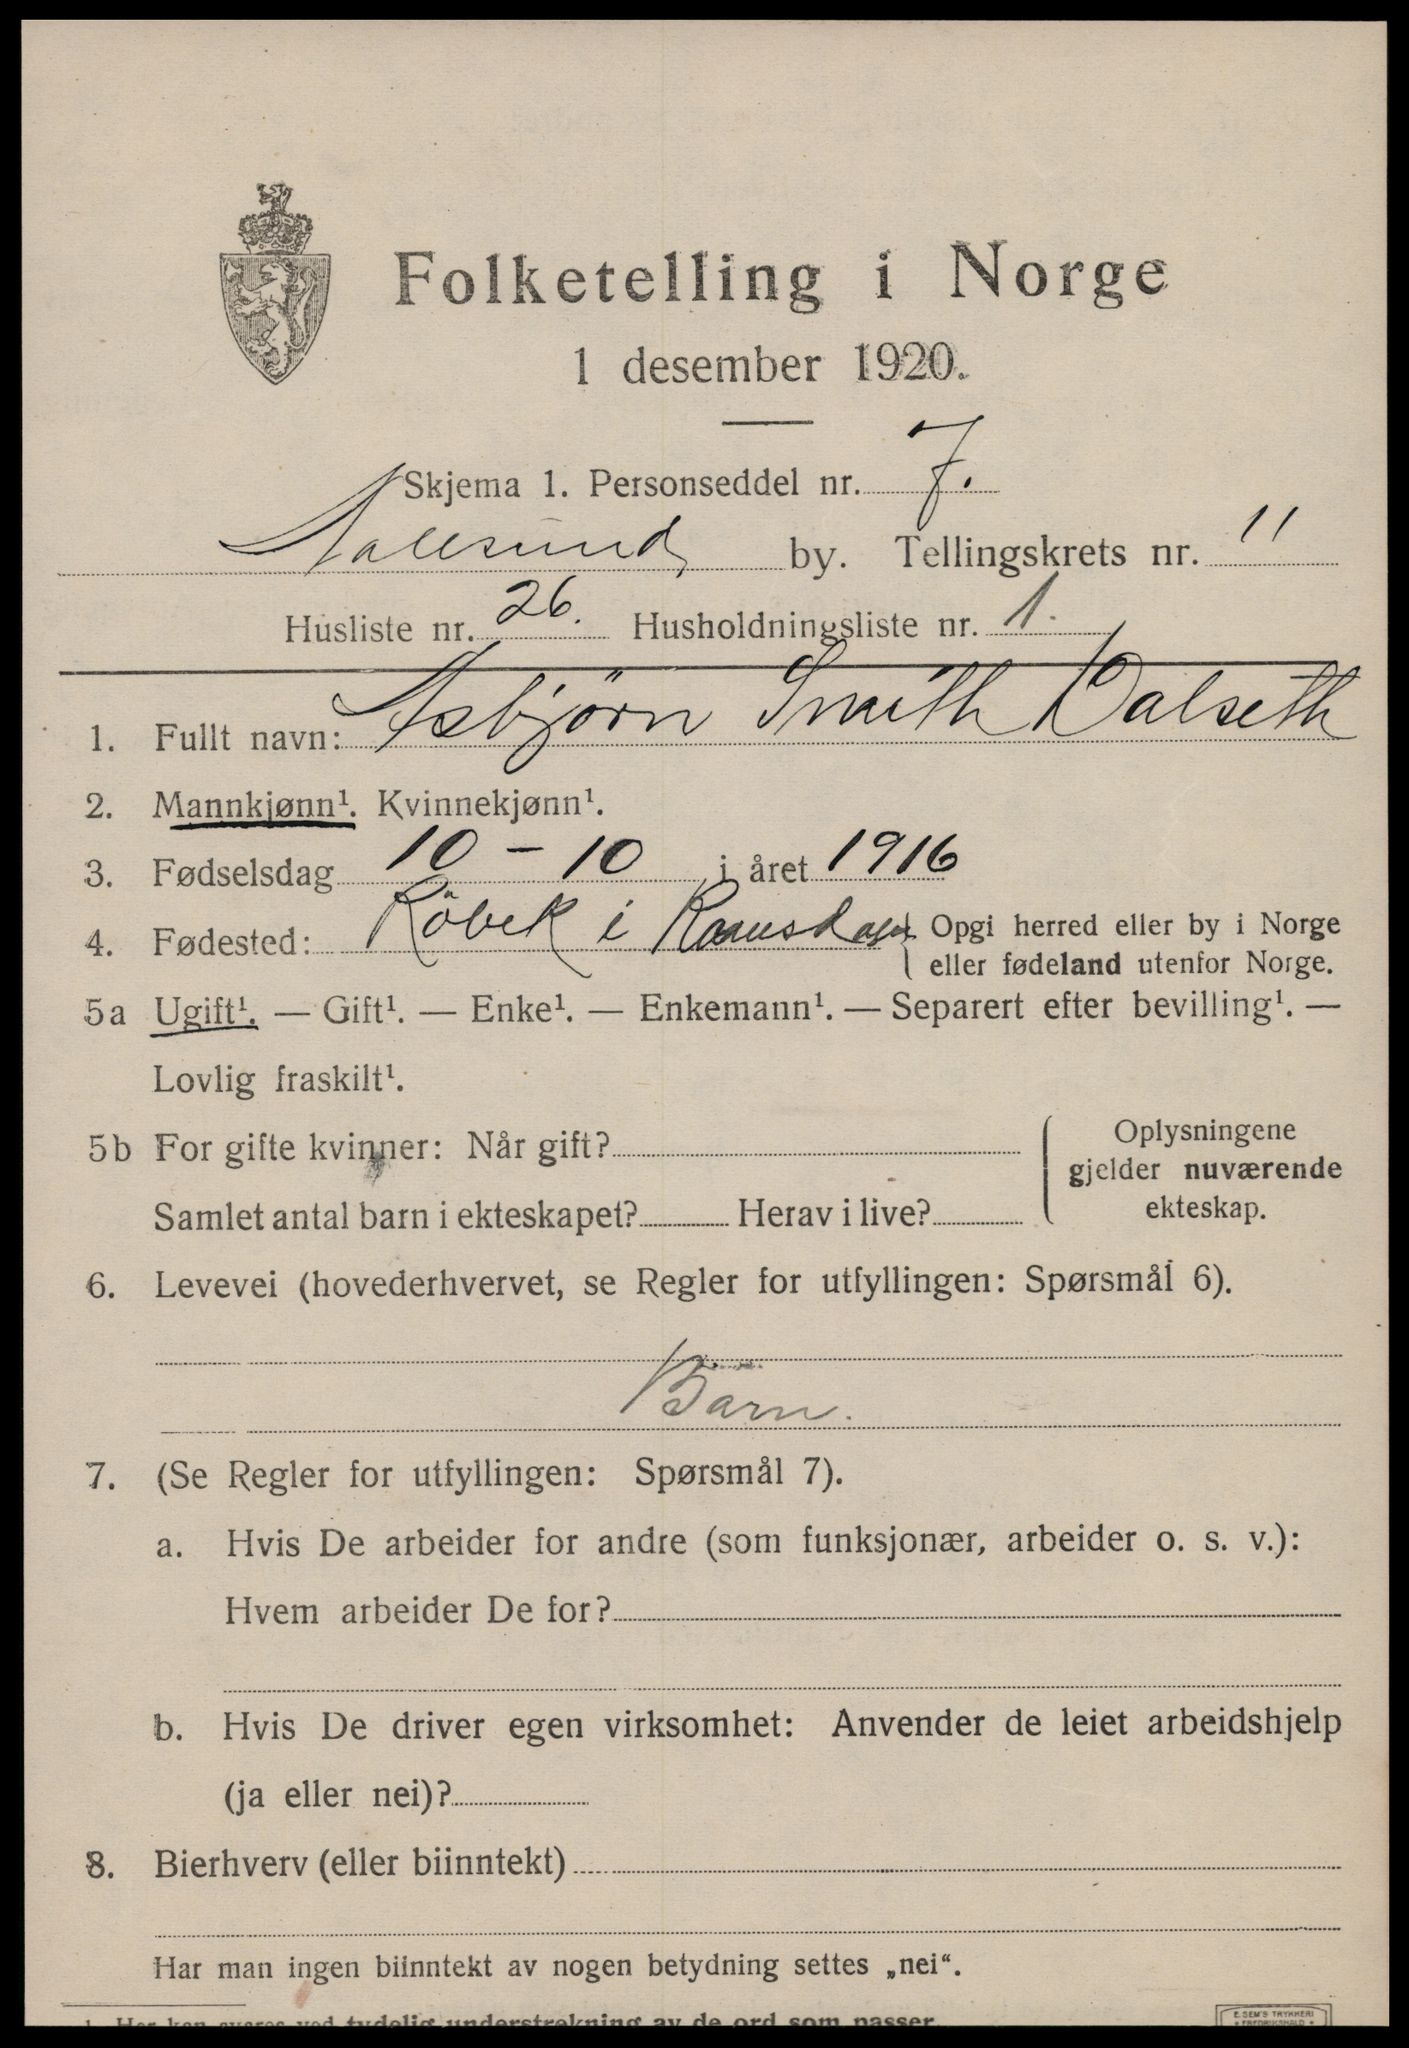 Folketelling i Norge
1 desember 1920.
Skjema 1. Personseddel nr. 7.
Aalesund by. Tellingskrets nr. 11
Husliste nr. 26. Husholdningsliste nr. 1.
1. Fullt navn: Asbjörn Smith Dalseth
2. Mannkjønn¹. Kvinnekjønn¹.
3. Fødselsdag 10 - 10 i året 1916
4. Fødested: Röbek i Romsdalen { Opgi herred eller by i Norge
eller fødeland utenfor Norge.
5a Ugift¹. — Gift¹. — Enke¹. — Enkemann¹. — Separert efter bevilling¹. —
Lovlig fraskilt¹.
5b For gifte kvinner: Når gift?
Samlet antal barn i ekteskapet? Herav i live?
Oplysningene
gjelder nuværende
ekteskap.
6. Levevei (hovederhvervet, se Regler for utfyllingen: Spørsmål 6).
Barn.
7. (Se Regler for utfyllingen: Spørsmål 7).
a. Hvis De arbeider for andre (som funksjonær, arbeider o. s. v.):
Hvem arbeider De for?
b. Hvis De driver egen virksomhet: Anvender de leiet arbeidshjelp
(ja eller nei)?
8. Bierhverv (eller biinntekt)
Har man ingen biinntekt av nogen betydning settes „nei“.
1. Her kan svares ved tydelig understrekning av de ord som passer.
E. SEM'S TRYKKERI
FREDRIKSHALD